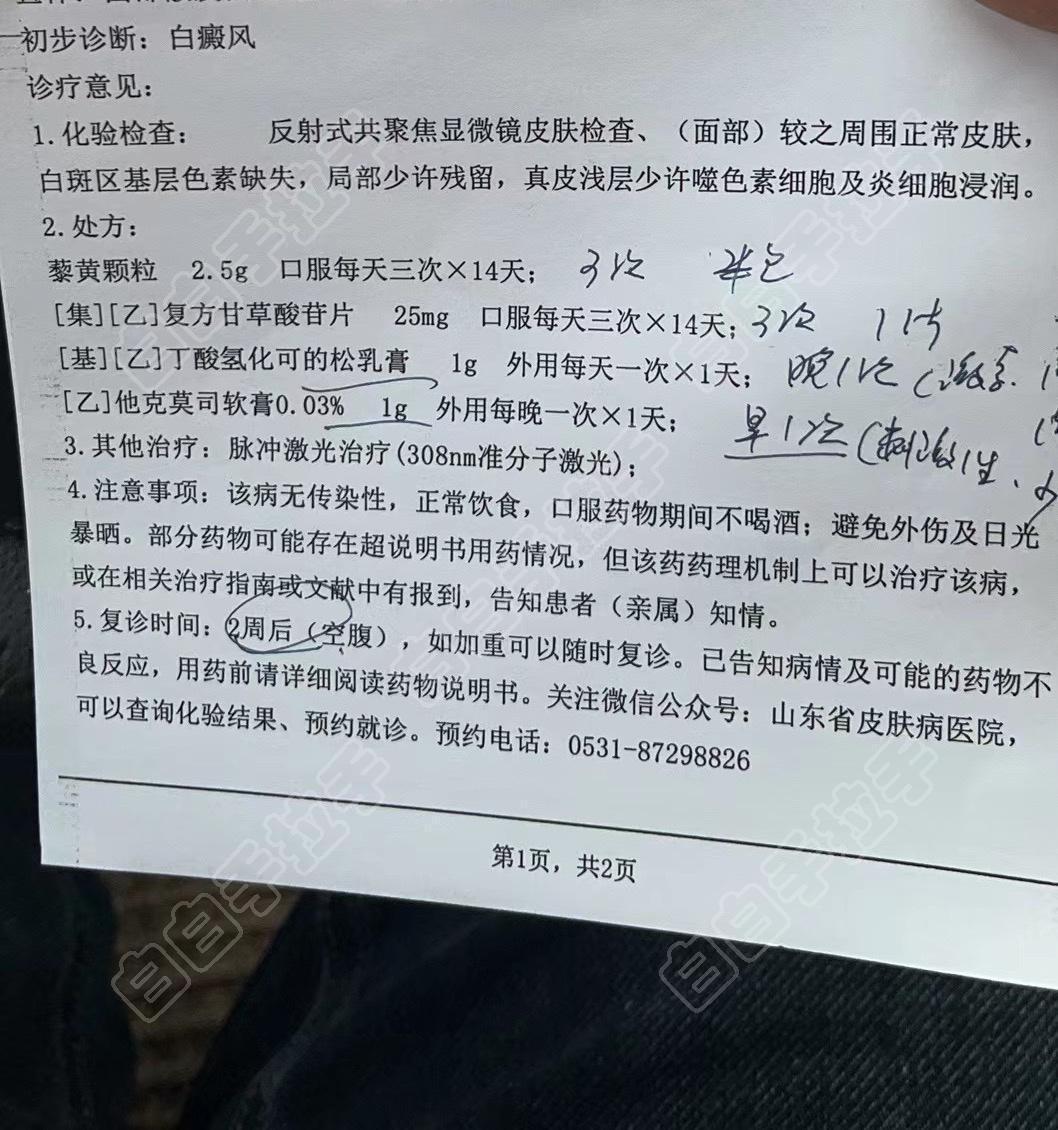 初步诊断：白癜风
诊疗意见：
1.化验检查： 反射式共聚焦显微镜皮肤检查、（面部）较之周围正常皮肤，
白斑区基层色素缺失，局部少许残留，真皮浅层少许噬色素细胞及炎细胞浸润。
2.处方：
藜黄颗粒 2.5g 口服每天三次×14天； 3次 半包
[集][乙]复方甘草酸苷片 25mg 口服每天三次×14天；3次 1片
[基][乙]丁酸氢化可的松乳膏 1g 外用每天一次×1天； 晚1次（激素.
[乙]他克莫司软膏0.03% 1g 外用每晚一次×1天； 早1次（刺激性、
3.其他治疗：脉冲激光治疗(308nm准分子激光)；
4.注意事项：该病无传染性，正常饮食，口服药物期间不喝酒；避免外伤及日光
暴晒。部分药物可能存在超说明书用药情况，但该药药理机制上可以治疗该病，
或在相关治疗指南或文献中有报到，告知患者（亲属）知情。
5.复诊时间：2周后（空腹），如加重可以随时复诊。已告知病情及可能的药物不
良反应，用药前请详细阅读药物说明书。关注微信公众号：山东省皮肤病医院，
可以查询化验结果、预约就诊。预约电话：0531-87298826
第1页，共2页
白白手拉手
白白手拉手
白白手拉手
白白手拉手